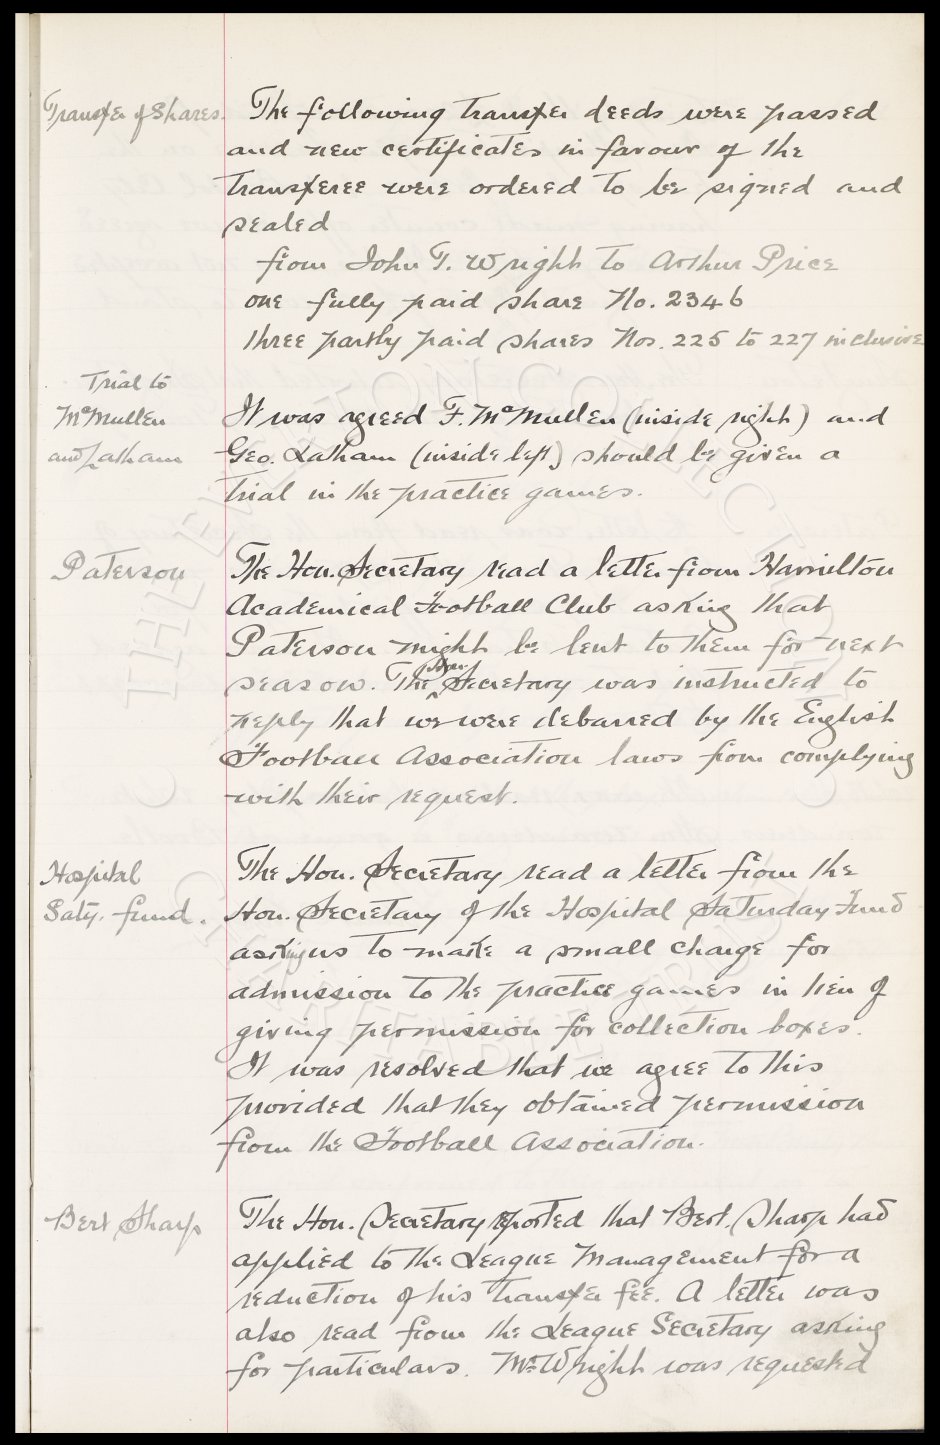 Transfer of Shares. The following transfer deeds were passed
and new certificates in favour of the
transferee were ordered to be signed and
sealed
from John T. Wright to Arthur Price
one fully paid share No. 2346
three partly paid shares Nos. 225 to 227 inclusive
Trial to
McMullen
and Latham
It was agreed F. McMullen (inside right) and
Geo. Latham (inside left) should be given a
trial in the practice games.
Paterson The Hon. Secretary read a letter from Hamilton
Academical Football Club asking that
Paterson might be lent to them for next
season. The Hon. Secretary was instructed to
reply that we were debarred by the English
Football Association laws from complying
with their request.
Hospital
Saty. fund.
The Hon. Secretary read a letter from the
Hon. Secretary of the Hospital Saturday Fund
asking us to make a small charge for
admission to the practice games in lieu of
giving permission for collection boxes.
It was resolved that we agree to this
provided that they obtained permission
from the Football Association.
Bert Sharp The Hon. Secretary reported that Bert. Sharp had
applied to the League Management for a
reduction of his transfer fee. A letter was
also read from the League Secretary asking
for particulars. Mr Wright was requested
THE EVERTON COLLECTION
CHARITABLE TRUST